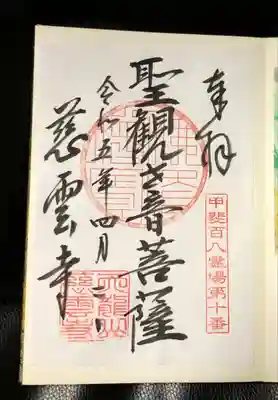 奉拝
甲斐百八霊場第十番
聖観世音菩薩
令和五年四月
慈雲寺
天龍山
慈雲寺